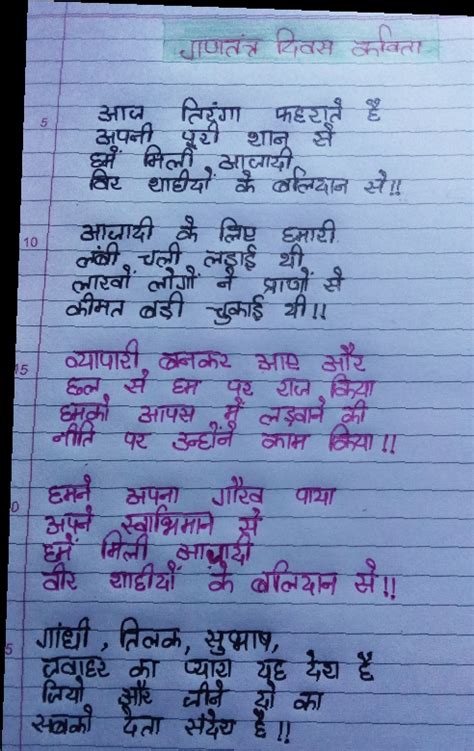 गणतंत्र दिवस कविता
5
आज तिरंगा फहराते है
अपनी पूरी शान से
हमें मिली आजादी
विर शाहीदों के बलिदान से!!
10
आजादी के लिए हमारी
लंबी चली लड़ाई थी
लाखों लोगों ने प्राणों से
कीमत बड़ी चुकाई थी!!
15
व्यापारी बनकर आए और
छल से हम पर राज किया
हमको आपस में लड़वाने की
नीति पर उन्होंने काम किया!!
0
हमने अपना गौरव पाया
अपने स्वाभिमान से
हमें मिली आजादी
वीर शाहीदों के बलिदान से!!
5
गांधी, तिलक, सुभाष,
जवाहर का प्यारा यह देश है
जियो और जीने दो का
सबको देता संदेश है!!